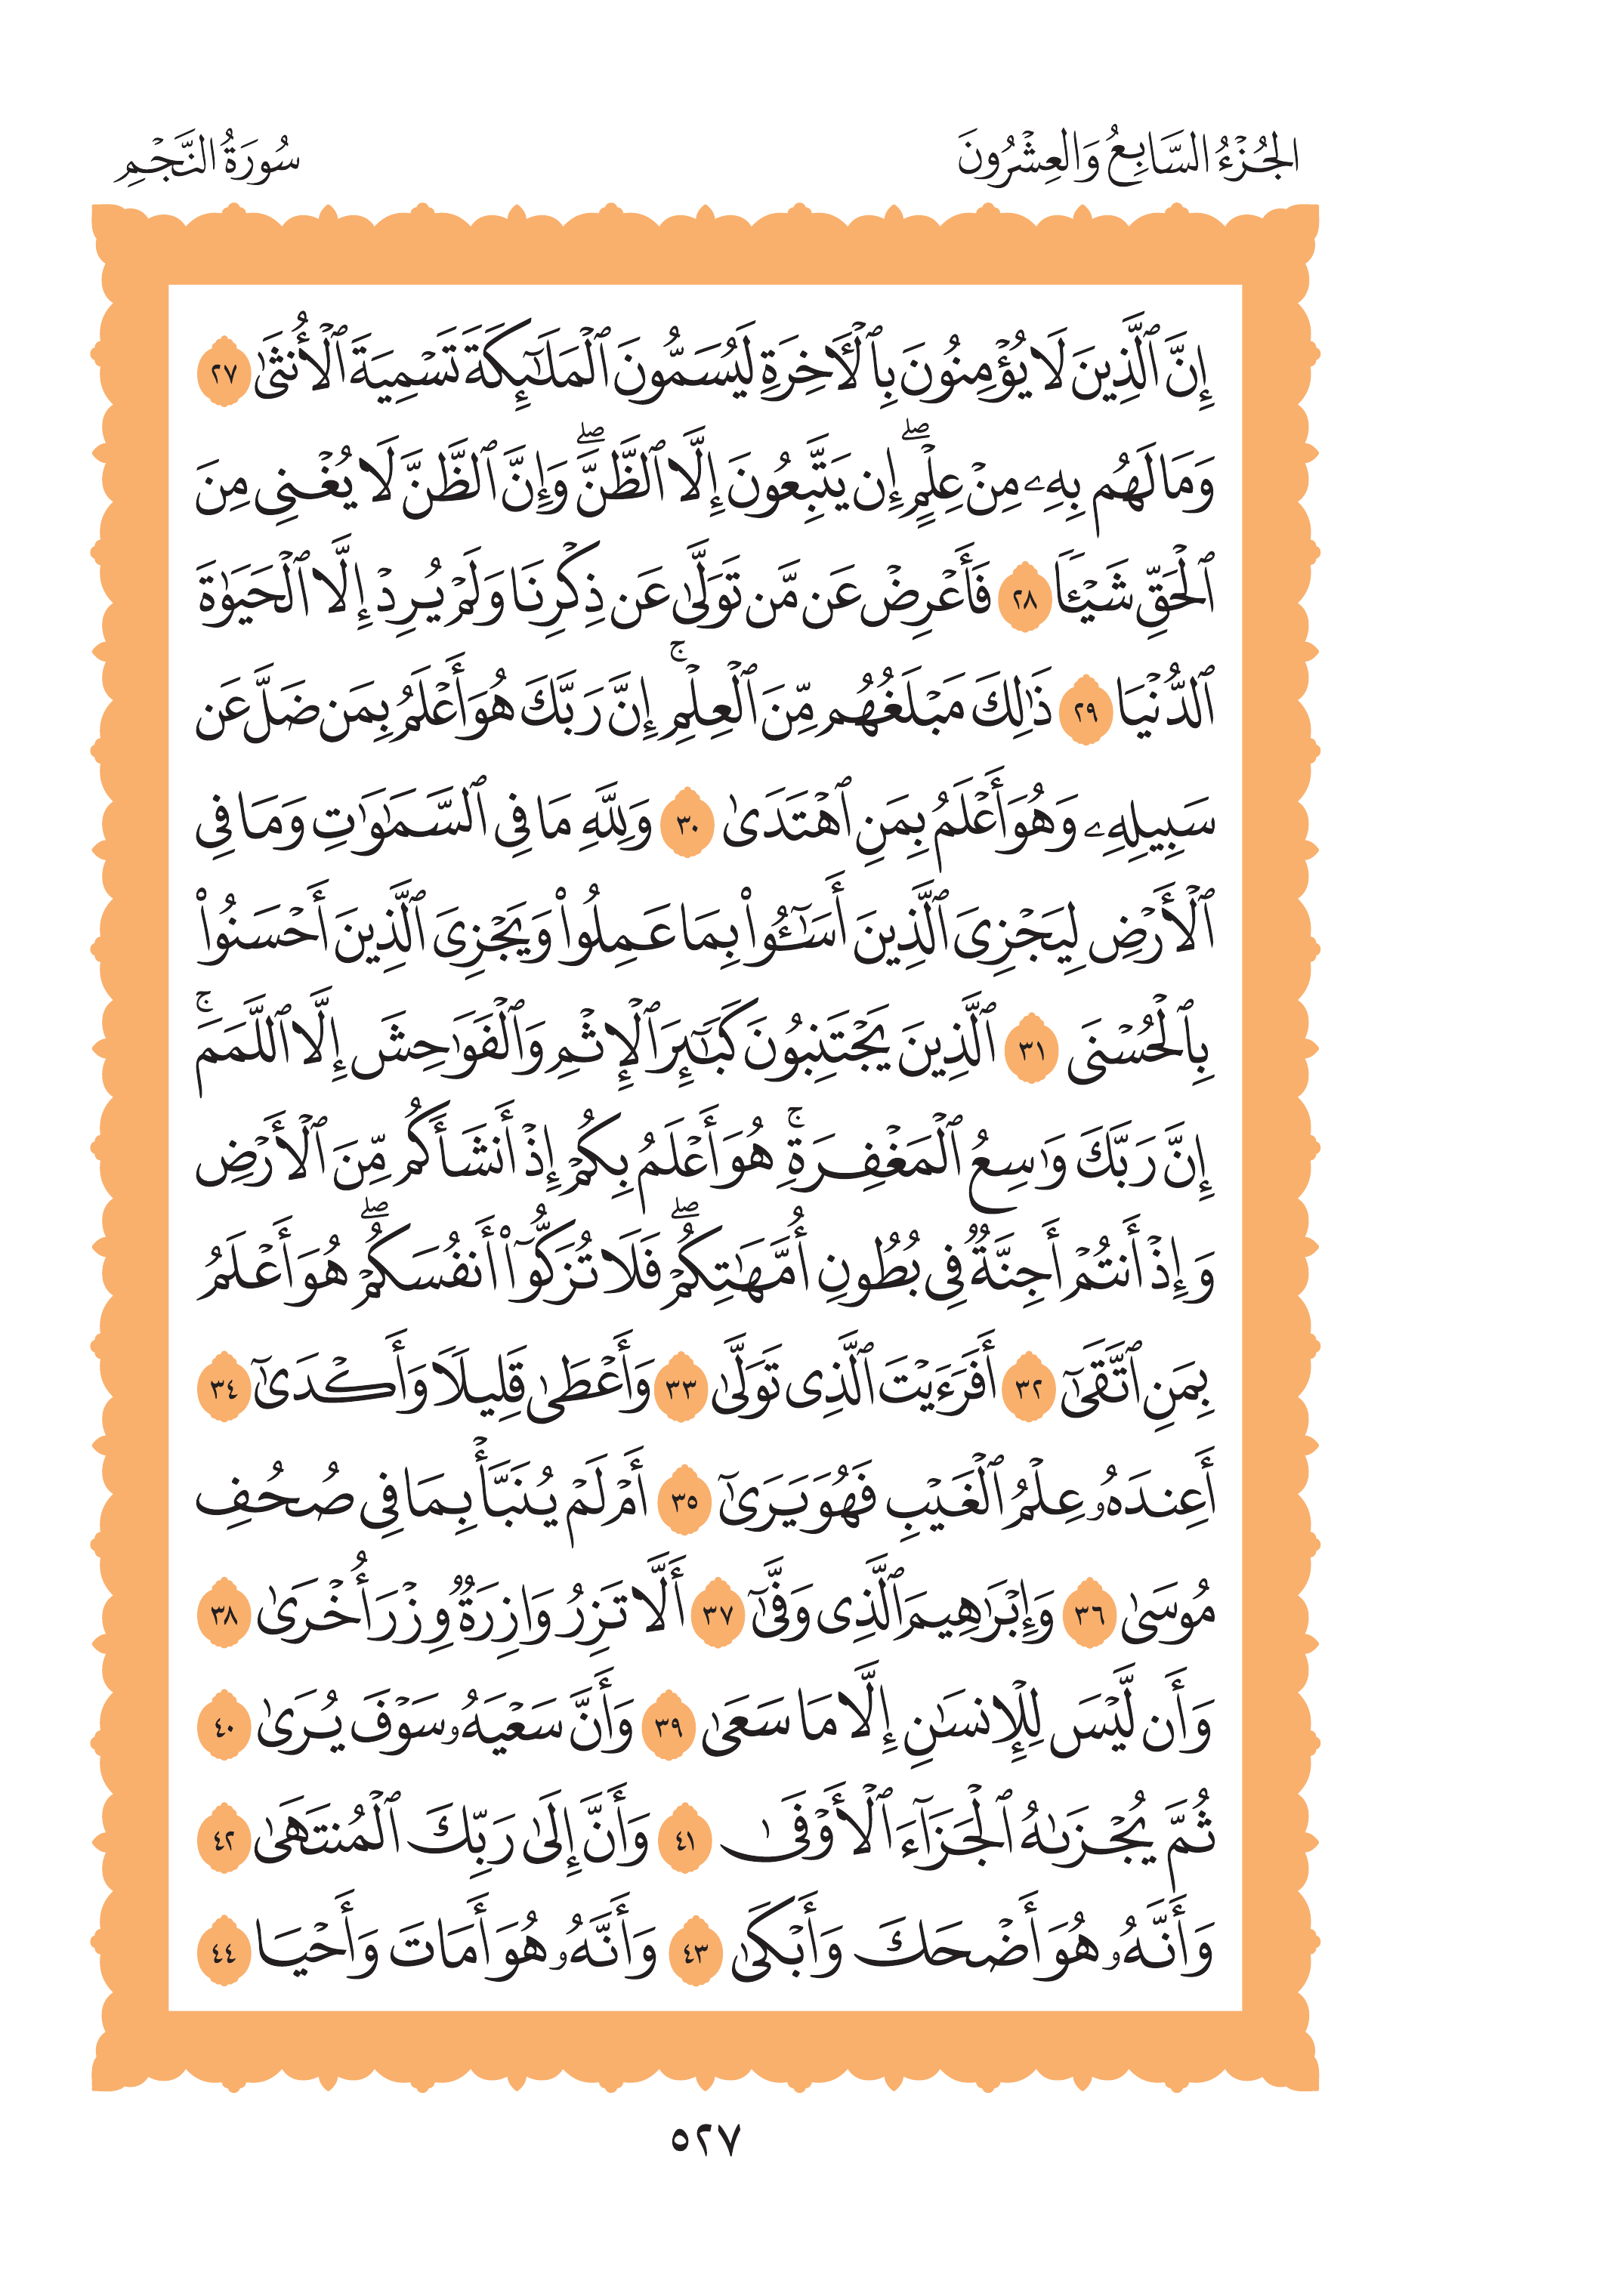 الجُزْءُ السَّابِعُ وَالعِشْرُونَ
سُورَةُ النَّجْمِ
إِنَّ ٱلَّذِينَ لَا يُؤۡمِنُونَ بِٱلۡأٓخِرَةِ لَيُسَمُّونَ ٱلۡمَلَـٰٓئِكَةَ تَسۡمِيَةَ ٱلۡأُنثَىٰ ٢٧
وَمَا لَهُم بِهِۦ مِنۡ عِلۡمٍۖ إِن يَتَّبِعُونَ إِلَّا ٱلظَّنَّۖ وَإِنَّ ٱلظَّنَّ لَا يُغۡنِي مِنَ
ٱلۡحَقِّ شَيۡـٔٗا ٢٨ فَأَعۡرِضۡ عَن مَّن تَوَلَّىٰ عَن ذِكۡرِنَا وَلَمۡ يُرِدۡ إِلَّا ٱلۡحَيَوٰةَ
ٱلدُّنۡيَا ٢٩ ذَٰلِكَ مَبۡلَغُهُم مِّنَ ٱلۡعِلۡمِۚ إِنَّ رَبَّكَ هُوَ أَعۡلَمُ بِمَن ضَلَّ عَن
سَبِيلِهِۦ وَهُوَ أَعۡلَمُ بِمَنِ ٱهۡتَدَىٰ ٣٠ وَلِلَّهِ مَا فِي ٱلسَّمَـٰوَٰتِ وَمَا فِي
ٱلۡأَرۡضِ لِيَجۡزِيَ ٱلَّذِينَ أَسَـٰٓـُٔواْ بِمَا عَمِلُواْ وَيَجۡزِيَ ٱلَّذِينَ أَحۡسَنُواْ
بِٱلۡحُسۡنَى ٣١ ٱلَّذِينَ يَجۡتَنِبُونَ كَبَـٰٓئِرَ ٱلۡإِثۡمِ وَٱلۡفَوَٰحِشَ إِلَّا ٱللَّمَمَۚ
إِنَّ رَبَّكَ وَٰسِعُ ٱلۡمَغۡفِرَةِۚ هُوَ أَعۡلَمُ بِكُمۡ إِذۡ أَنشَأَكُم مِّنَ ٱلۡأَرۡضِ
وَإِذۡ أَنتُمۡ أَجِنَّةٞ فِي بُطُونِ أُمَّهَـٰتِكُمۡۖ فَلَا تُزَكُّوٓاْ أَنفُسَكُمۡۖ هُوَ أَعۡلَمُ
بِمَنِ ٱتَّقَىٰٓ ٣٢ أَفَرَءَيۡتَ ٱلَّذِي تَوَلَّىٰ ٣٣ وَأَعۡطَىٰ قَلِيلٗا وَأَكۡدَىٰٓ ٣٤
أَعِندَهُۥ عِلۡمُ ٱلۡغَيۡبِ فَهُوَ يَرَىٰٓ ٣٥ أَمۡ لَمۡ يُنَبَّأۡ بِمَا فِي صُحُفِ
مُوسَىٰ ٣٦ وَإِبۡرَٰهِيمَ ٱلَّذِي وَفَّىٰٓ ٣٧ أَلَّا تَزِرُ وَازِرَةٞ وِزۡرَ أُخۡرَىٰ ٣٨
وَأَن لَّيۡسَ لِلۡإِنسَـٰنِ إِلَّا مَا سَعَىٰ ٣٩ وَأَنَّ سَعۡيَهُۥ سَوۡفَ يُرَىٰ ٤٠
ثُمَّ يُجۡزَىٰهُ ٱلۡجَزَآءَ ٱلۡأَوۡفَىٰ ٤١ وَأَنَّ إِلَىٰ رَبِّكَ ٱلۡمُنتَهَىٰ ٤٢
وَأَنَّهُۥ هُوَ أَضۡحَكَ وَأَبۡكَىٰ ٤٣ وَأَنَّهُۥ هُوَ أَمَاتَ وَأَحۡيَا ٤٤
٥٢٧